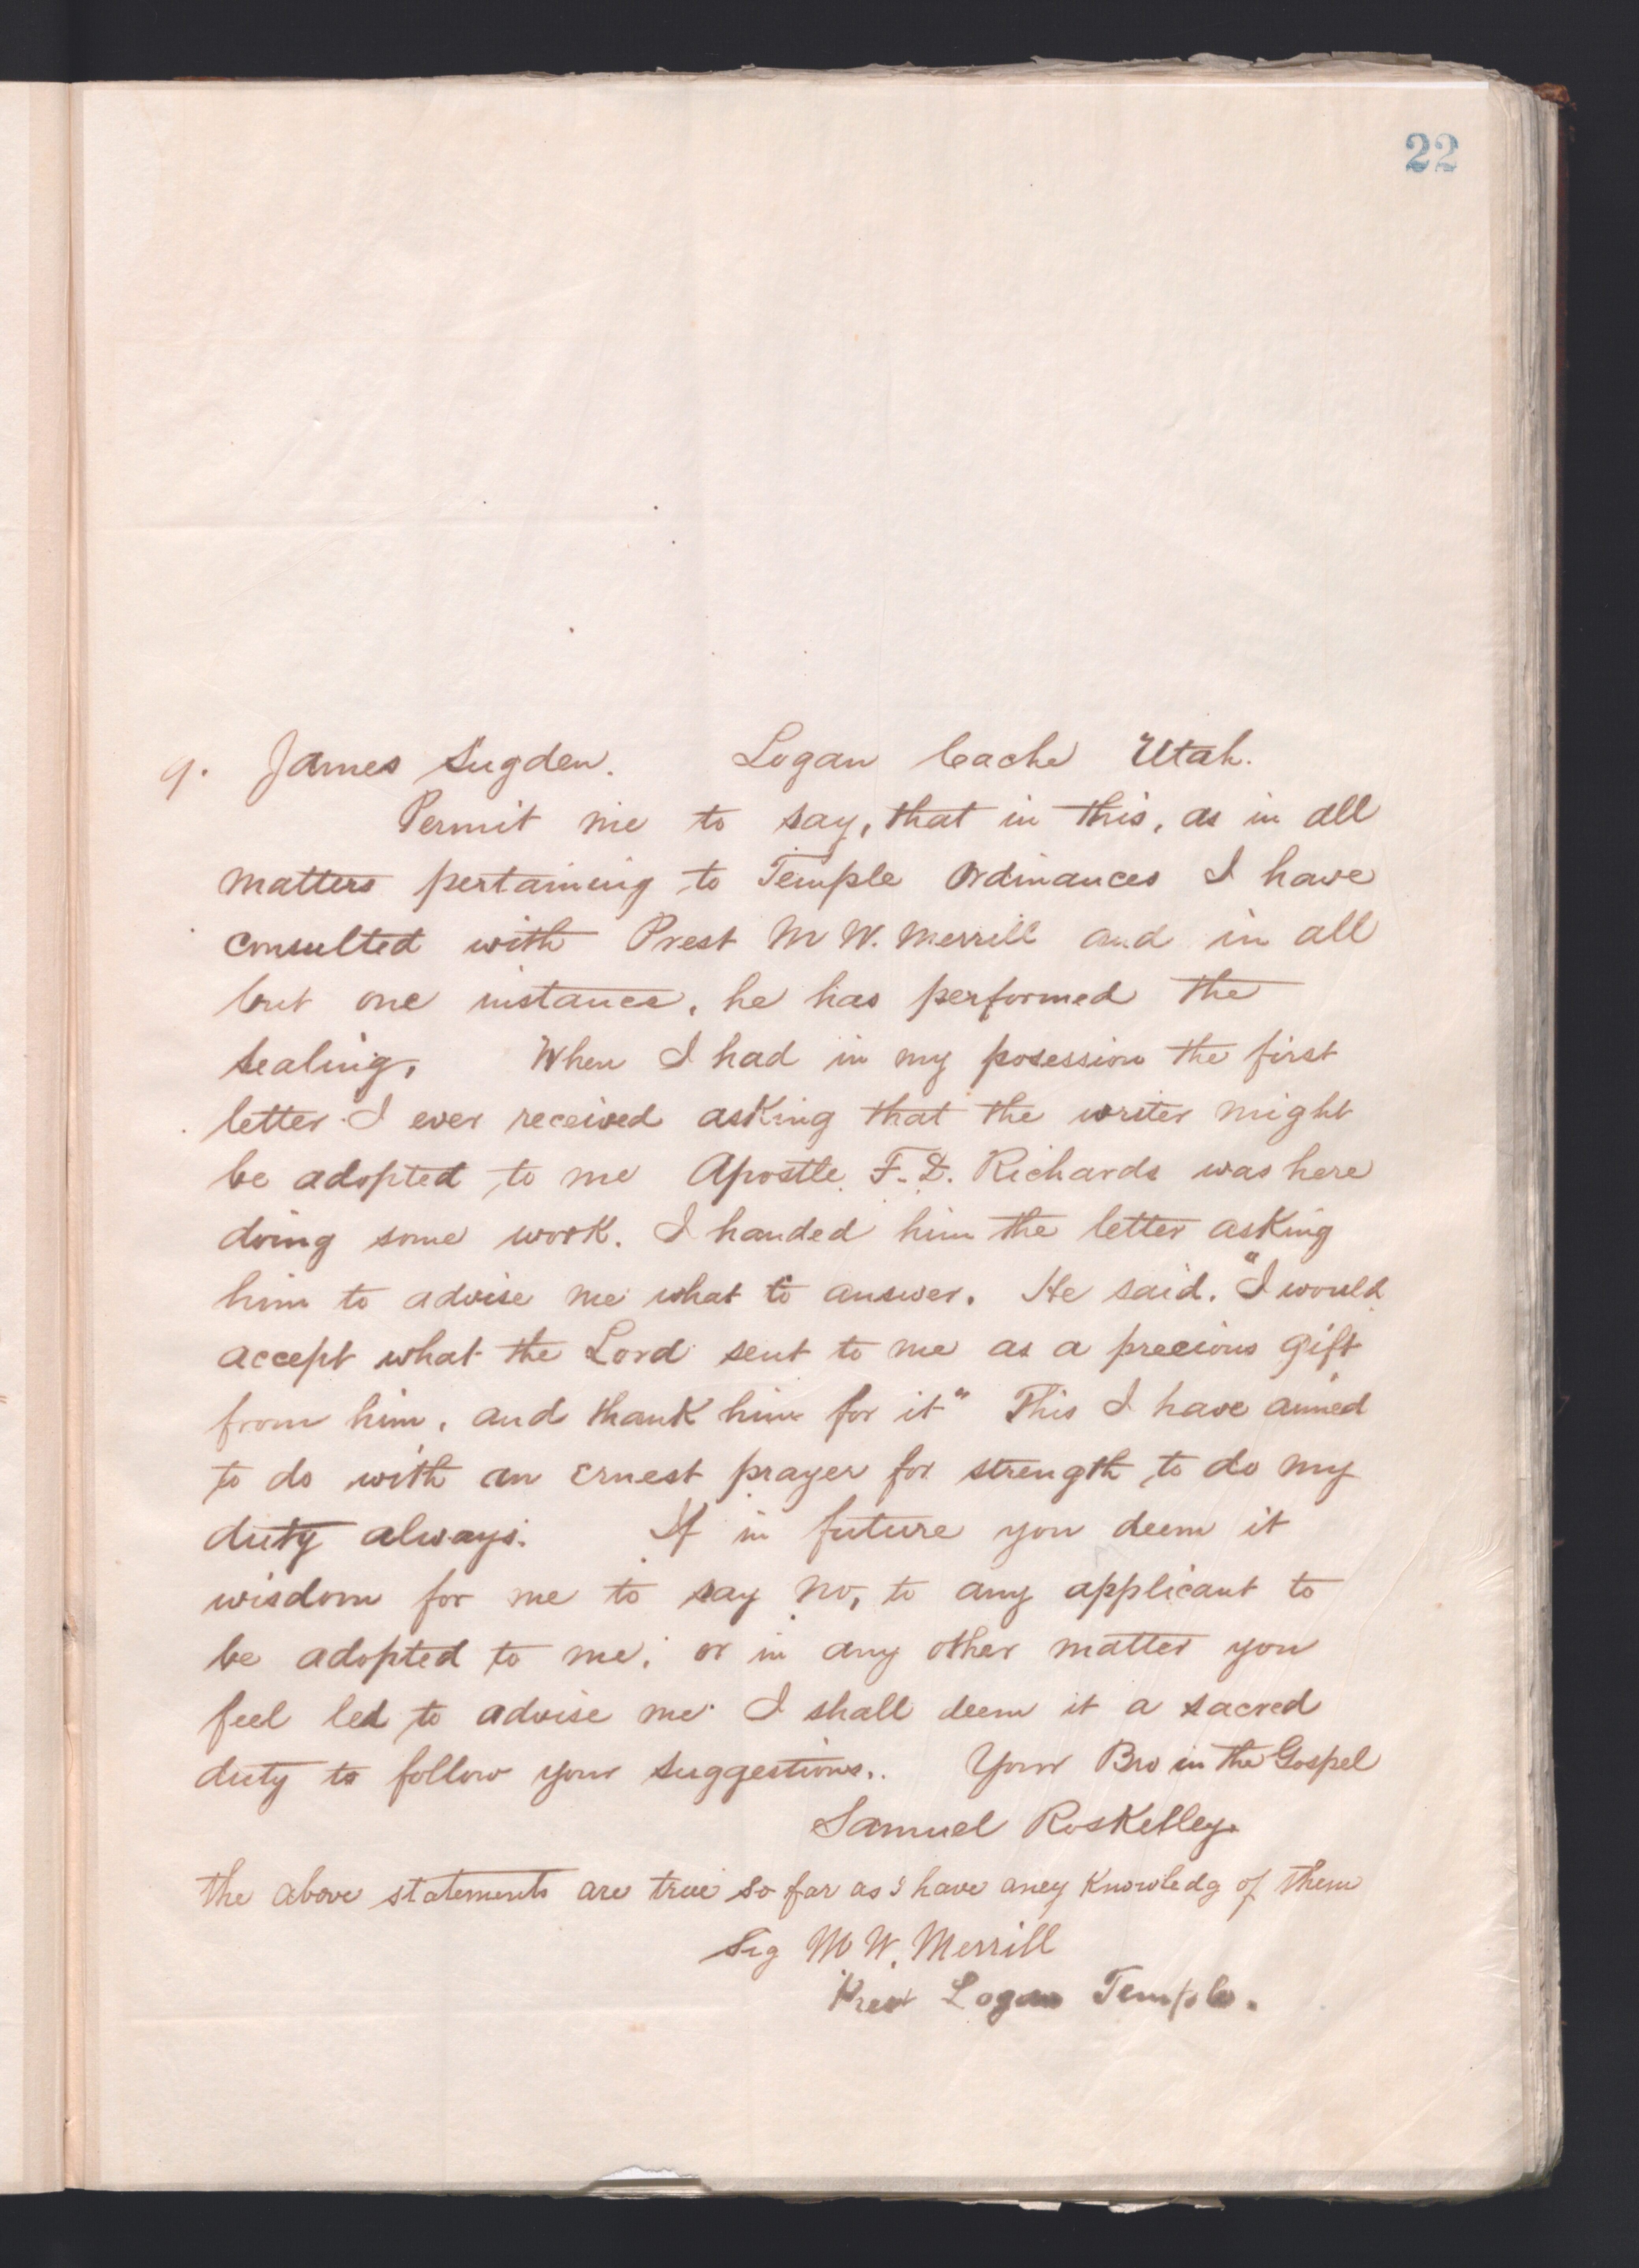 22
9. James Sugden. Logan Cache Utah.
Permit me to say, that in this, as in all
matters pertaining to Temple Ordinances I have
consulted with Prest M W. Merrill and in all
but one instance, he has performed the
sealing. When I had in my posession the first
letter I ever received asking that the writer might
be adopted to me Apostle F. D. Richards was here
doing some work. I handed him the letter asking
him to advise me what to answer. He said. "I would
accept what the Lord sent to me as a precious gift
from him, and thank him for it" This I have aimed
to do with an Ernest prayer for strength to do my
duty always. If in future you deem it
wisdom for me to say no, to any applicant to
be adopted to me; or in any other matter you
feel led to advise me I shall deem it a sacred
duty to follow your suggestions. Your Bro in the Gospel
Samuel Roskelley.
The above statements are true so far as I have aney knowledg of them
Sig M W. Merrill
Prest Logan Temple.